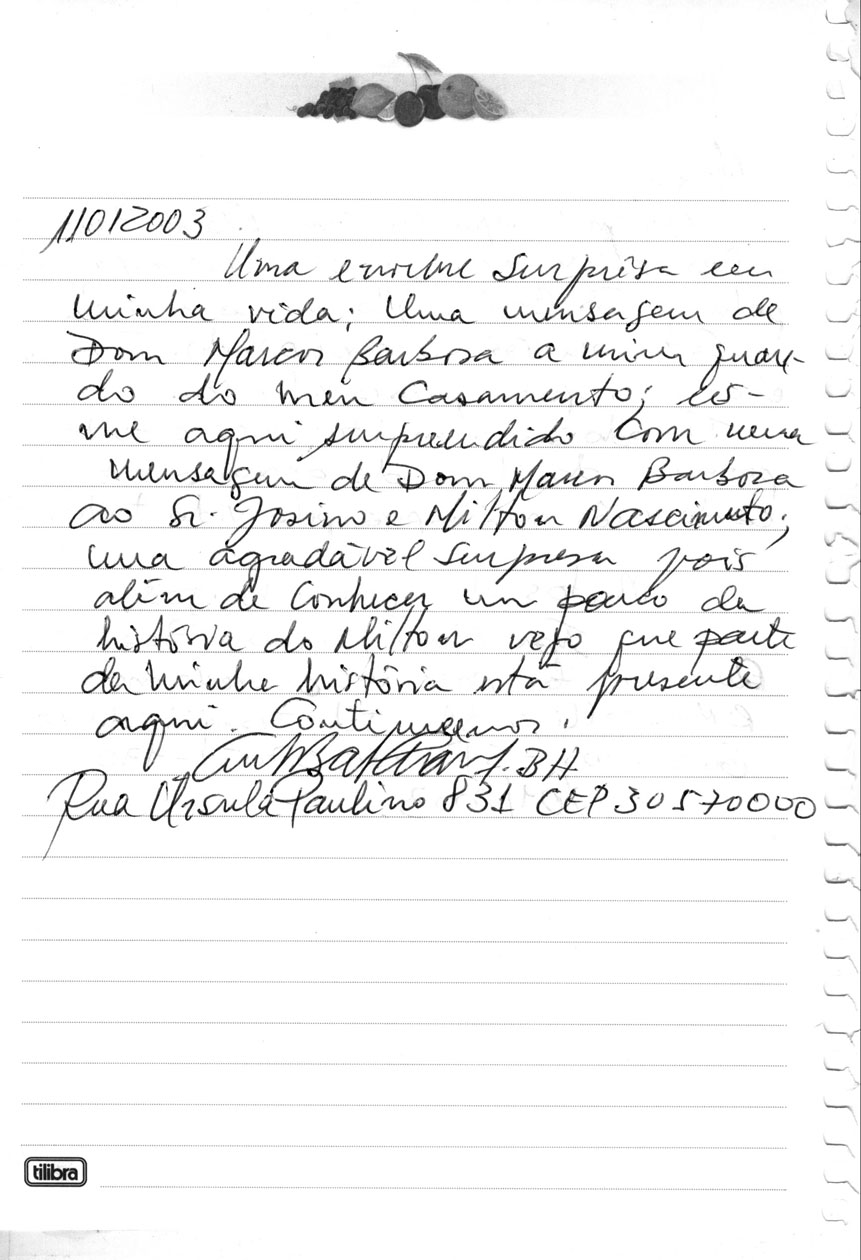 11012003
Uma enorme surpresa em
minha vida; Uma mensagem de
Dom Marcos Barbosa a mim quan-
do do meu Casamento; eis-
me aqui surpreendido com uma
mensagem de Dom Marcos Barbosa
ao Sr. Josino e Milton Nascimento;
uma agradável surpresa pois
além de conhecer um pouco da
história do Milton vejo que parte
da minha história está presente
aqui. Continuemos.
BH
Rua Úrsula Paulino 831 CEP 30570000
tilibra